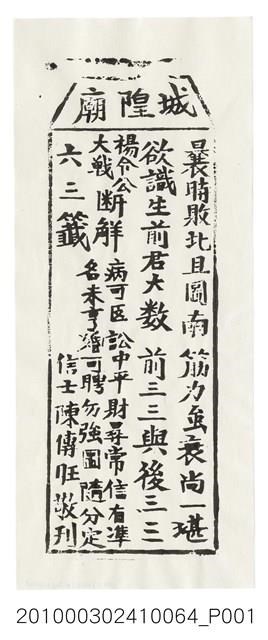 城隍廟
曩時敗北且圖南 筋力虽衰尚一堪
欲識生前君大數 前三三與後三三
楊令公
大戦
断解
病可医 訟中平 財尋常 信有準
名未亨 婚可聘 勿強圖 隨分定
六三籤
信士陳傳旺敬刊
201000302410064_P001